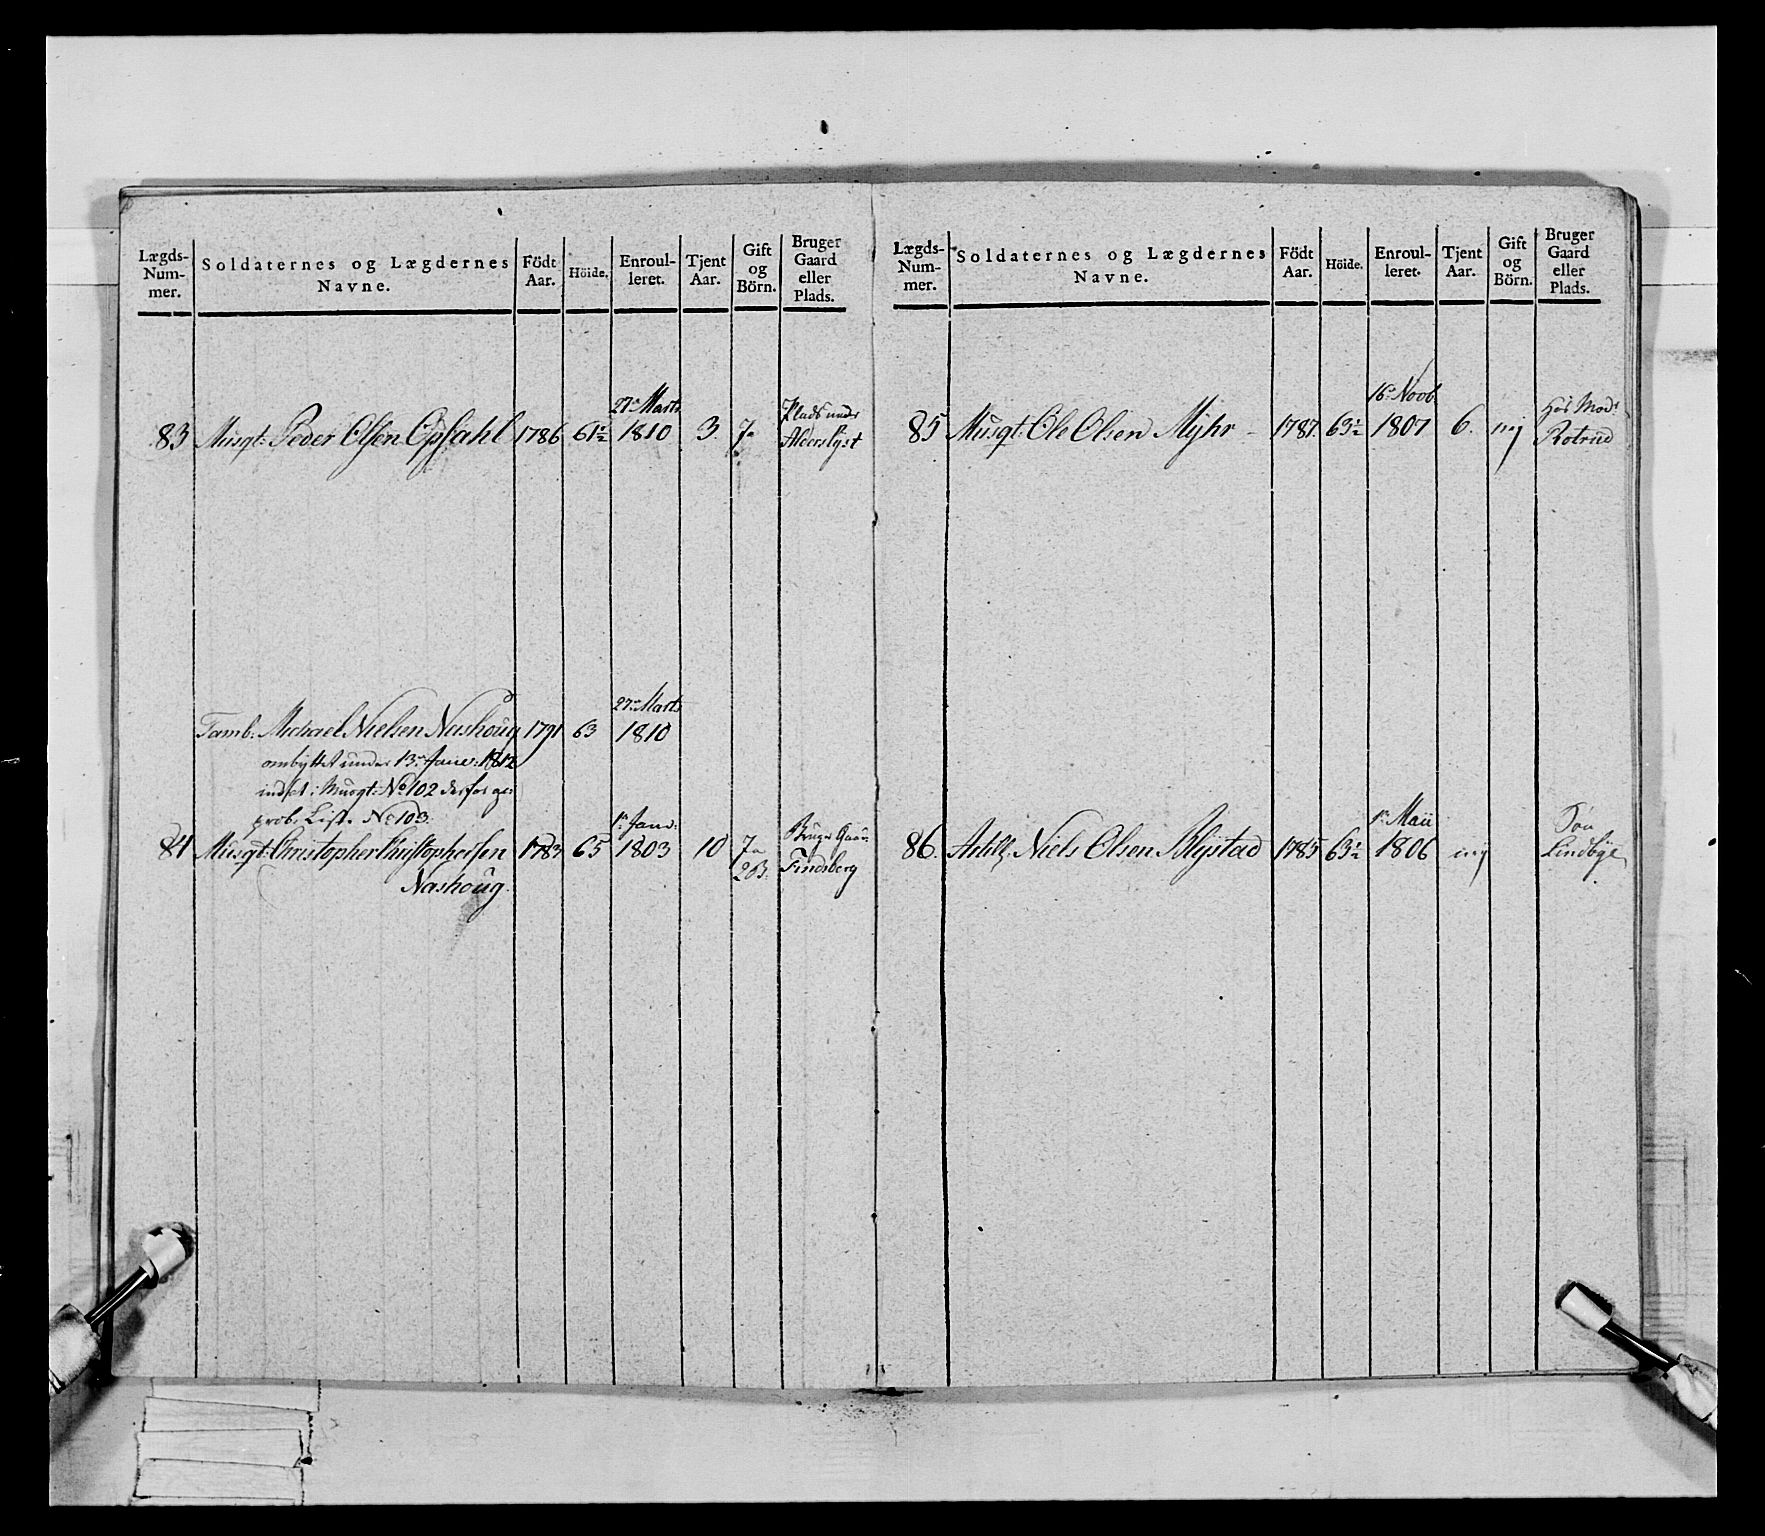 Lægds-Num-mer. Soldaternes og Lægdernes Navne. Födt Aar. Höide. Enroul-leret. Tjent Aar. Gift og Börn. Bruger Gaard eller Plads.
27de Marts Plads under
83 Musqt: Peder Olsen Opsahl 1786 61½ 1810 3. Ja Alderslyst
27de Marts
Tamb: Michael Nielsen Nashoug 1791 63 1810
ombyttet under 13de Janv: 1812
indsat: Musqt: No 102 derfor
prob. List. No 103.
1te Janv: Bruger Gaard
84 Musqt: Christopher Christophersen 1783 65 1803 10 Ja Findsberg
Nashoug. 2 B.
Lægds-Num-mer. Soldaternes og Lægdernes Navne. Födt Aar. Höide. Enroul-leret. Tjent Aar. Gift og Börn. Bruger Gaard eller Plads.
16de Novb. Hos
85 Musqt: Ole Olsen Myhr 1787. 63½ 1807 6. nej Rotrud
1te Maii
86. Artill: Niels Olsen Blystad 1785 63½ 1806 nej Lindbye